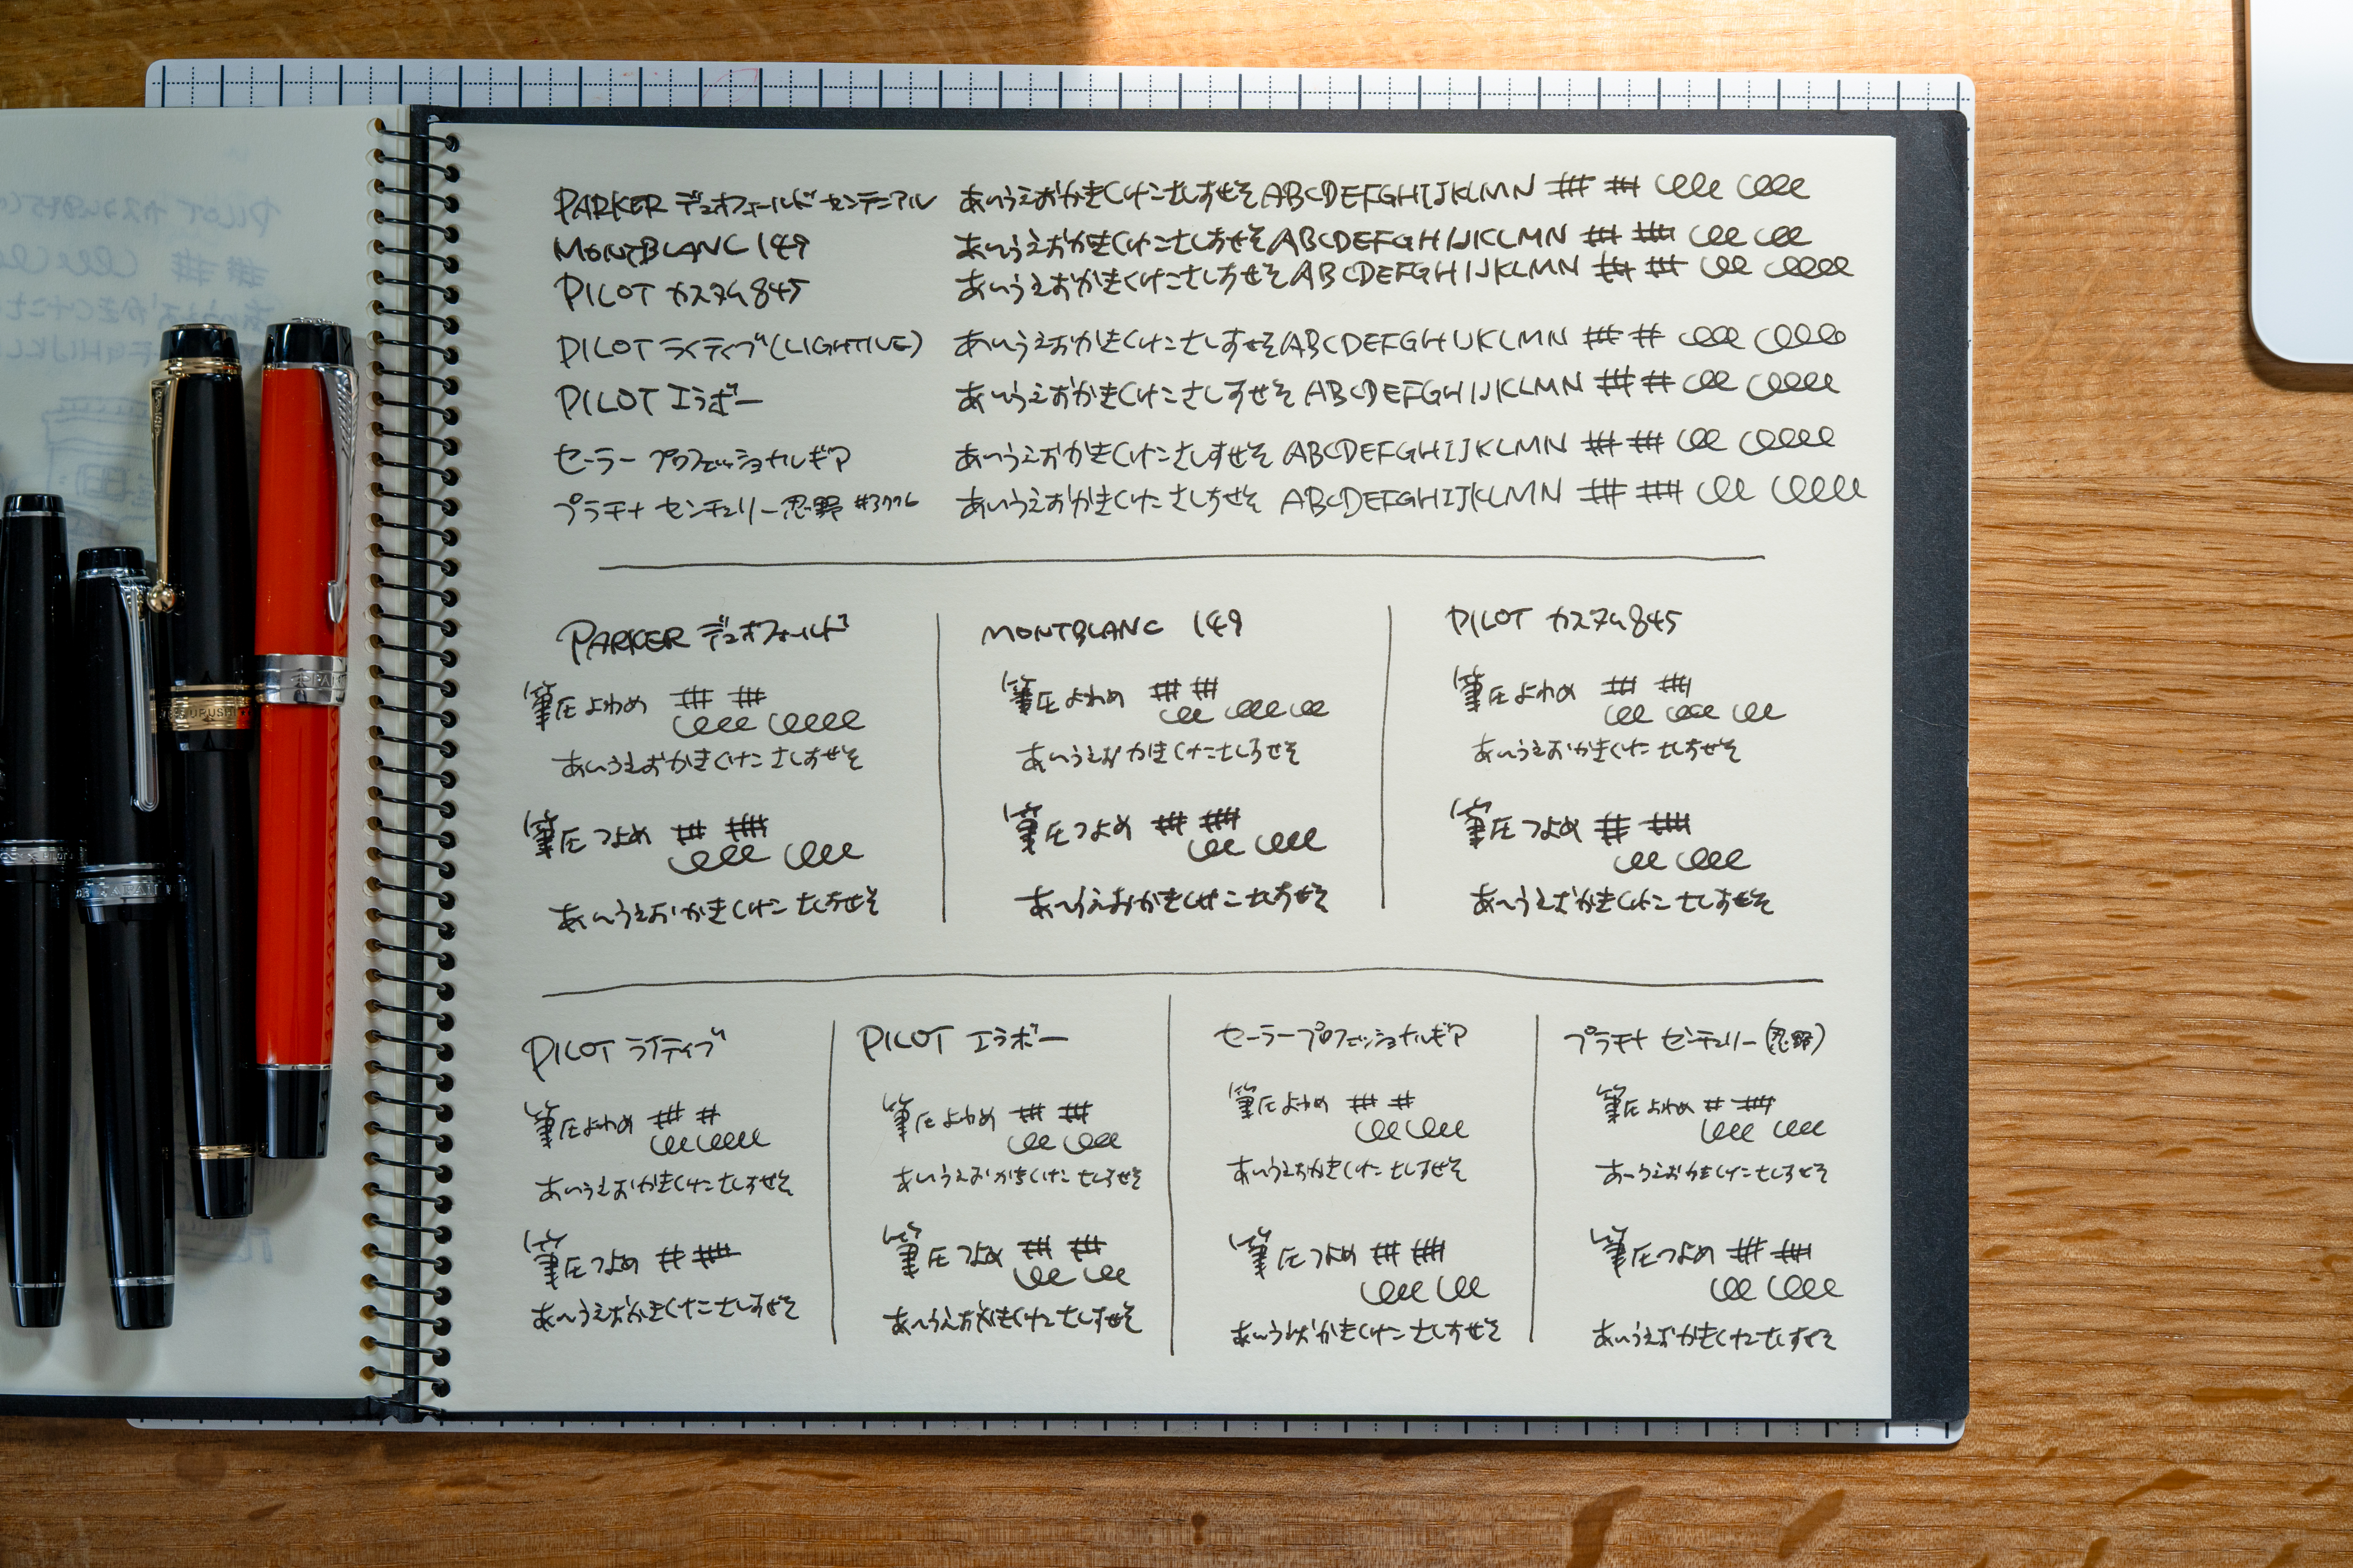 PARKER デュオフォールド センテニアル あいうえおかきくけこさしすせそABCDEFGHIJKLMN
MONTBLANC 149 あいうえおかきくけこさしすせそABCDEFGHIJKLMN
PILOT カスタム845 あいうえおかきくけこさしすせそABCDEFGHIJKLMN
PILOT ライティブ(LIGHTIVE) あいうえおかきくけこさしすせそABCDEFGHIJKLMN
PILOT エラボー あいうえおかきくけこさしすせそ ABCDEFGHIJKLMN
セーラー プロフェッショナルギア あいうえおかきくけこさしすせそ ABCDEFGHIJKLMN
プラチナ センチュリー忍野 #3776 あいうえおかきくけこさしすせそ ABCDEFGHIJKLMN
PARKER デュオフォールド
筆圧よわめ
あいうえおかきくけこさしすせそ
筆圧つよめ
あいうえおかきくけこさしすせそ
MONTBLANC 149
筆圧よわめ
あいうえおかきくけこさしすせそ
筆圧つよめ
あいうえおかきくけこさしすせそ
PILOT カスタム845
筆圧よわめ
あいうえおかきくけこさしすせそ
筆圧つよめ
あいうえおかきくけこさしすせそ
PILOT ライティブ
筆圧よわめ
あいうえおかきくけこさしすせそ
筆圧つよめ
あいうえおかきくけこさしすせそ
PILOT エラボー
筆圧よわめ
あいうえおかきくけこさしすせそ
筆圧つよめ
あいうえおかきくけこさしすせそ
セーラープロフェッショナルギア
筆圧よわめ
あいうえおかきくけこさしすせそ
筆圧つよめ
あいうえおかきくけこさしすせそ
プラチナ センチュリー(忍野)
筆圧よわめ
あいうえおかきくけこさしすせそ
筆圧つよめ
あいうえおかきくけこさしすせそ